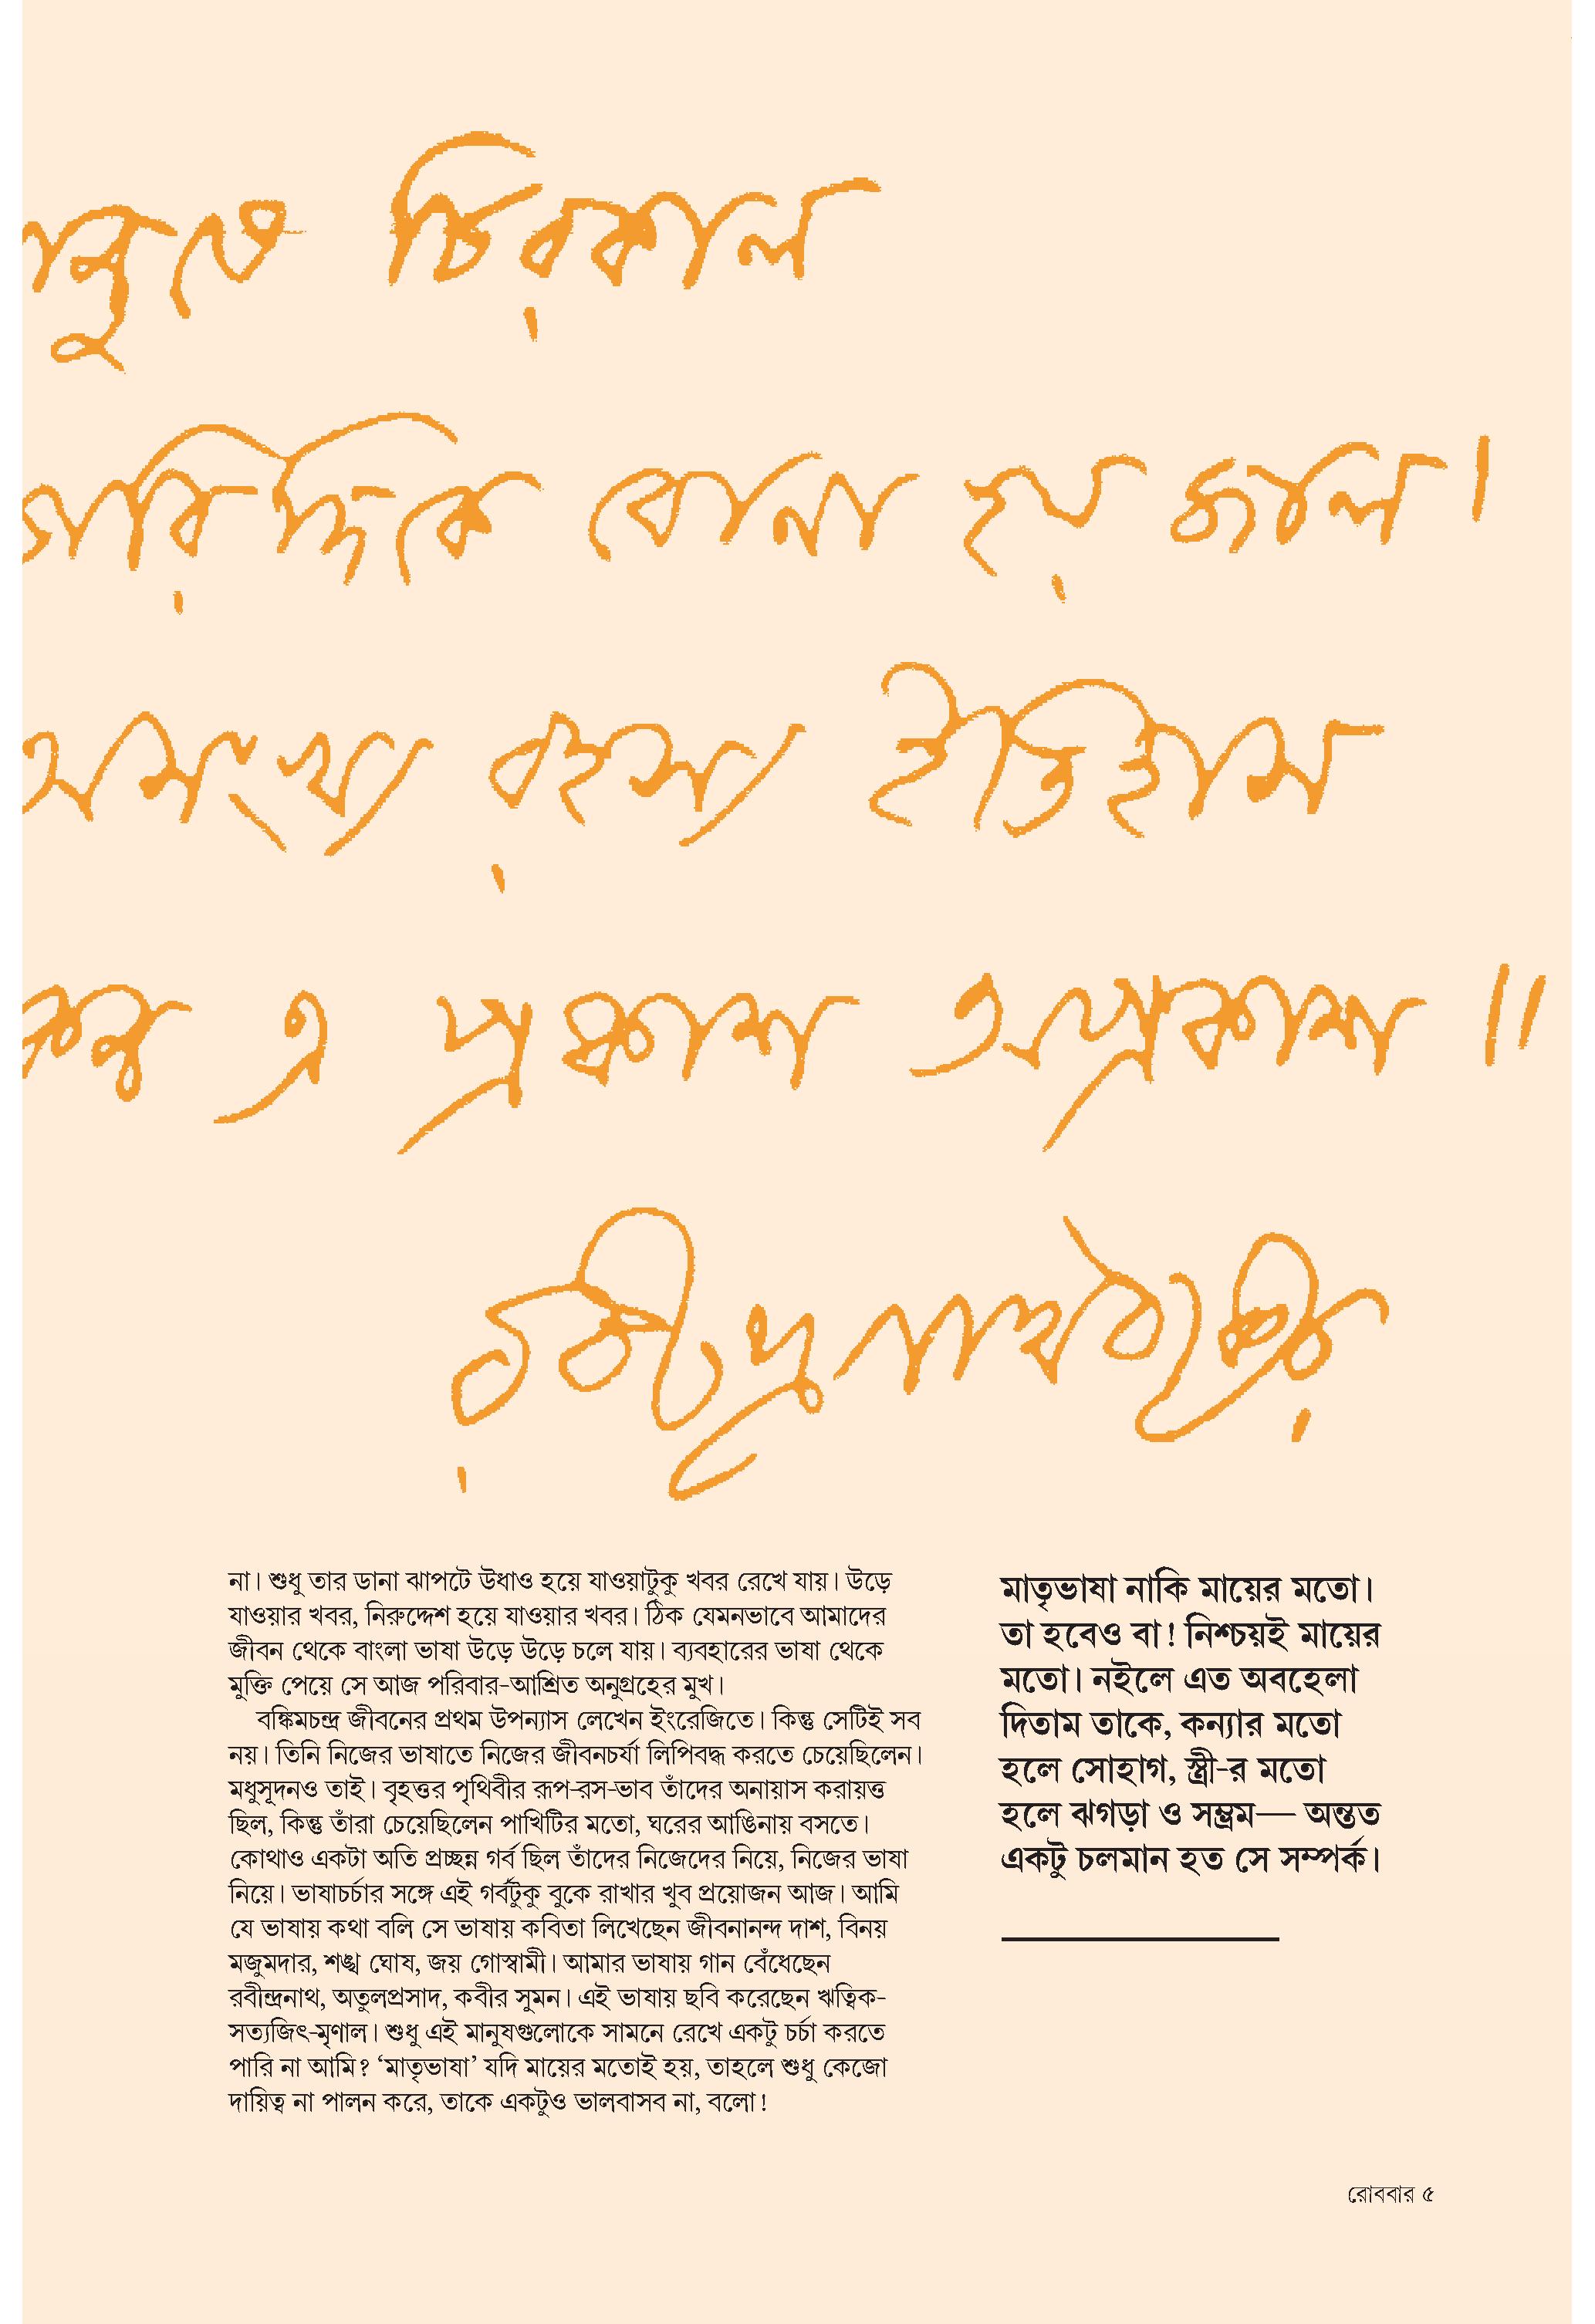 চিরকাল
বোনা হয় জাল।
অসংখ্য রহস্য ইতিহাস
এ প্রকাশ অপ্রকাশ॥
রবীন্দ্রনাথ ঠাকুর
না। শুধু তার ডানা ঝাপটে উধাও হয়ে যাওয়াটুকু খবর রেখে যায়। উড়ে
যাওয়ার খবর, নিরুদ্দেশ হয়ে যাওয়ার খবর। ঠিক যেমনভাবে আমাদের
জীবন থেকে বাংলা ভাষা উড়ে উড়ে চলে যায়। ব্যবহারের ভাষা থেকে
মুক্তি পেয়ে সে আজ পরিবার-আশ্রিত অনুগ্রহের মুখ।
বঙ্কিমচন্দ্র জীবনের প্রথম উপন্যাস লেখেন ইংরেজিতে। কিন্তু সেটিই সব
নয়। তিনি নিজের ভাষাতে নিজের জীবনচর্যা লিপিবদ্ধ করতে চেয়েছিলেন।
মধুসূদনও তাই। বৃহত্তর পৃথিবীর রূপ-রস-ভাব তাঁদের অনায়াস করায়ত্ত
ছিল, কিন্তু তাঁরা চেয়েছিলেন পাখিটির মতো, ঘরের আঙিনায় বসতে।
কোথাও একটা অতি প্রচ্ছন্ন গর্ব ছিল তাঁদের নিজেদের নিয়ে, নিজের ভাষা
নিয়ে। ভাষাচর্চার সঙ্গে এই গর্বটুকু বুকে রাখার খুব প্রয়োজন আজ। আমি
যে ভাষায় কথা বলি সে ভাষায় কবিতা লিখেছেন জীবনানন্দ দাশ, বিনয়
মজুমদার, শঙ্খ ঘোষ, জয় গোস্বামী। আমার ভাষায় গান বেঁধেছেন
রবীন্দ্রনাথ, অতুলপ্রসাদ, কবীর সুমন। এই ভাষায় ছবি করেছেন ঋত্বিক-
সত্যজিৎ-মৃণাল। শুধু এই মানুষগুলোকে সামনে রেখে একটু চর্চা করতে
পারি না আমি? ‘মাতৃভাষা’ যদি মায়ের মতোই হয়, তাহলে শুধু কেজো
দায়িত্ব না পালন করে, তাকে একটুও ভালবাসব না, বলো!
মাতৃভাষা নাকি মায়ের মতো।
তা হবেও বা! নিশ্চয়ই মায়ের
মতো। নইলে এত অবহেলা
দিতাম তাকে, কন্যার মতো
হলে সোহাগ, স্ত্রী-র মতো
হলে ঝগড়া ও সম্ভ্রম— অন্তত
একটু চলমান হত সে সম্পর্ক।
রোববার ৫